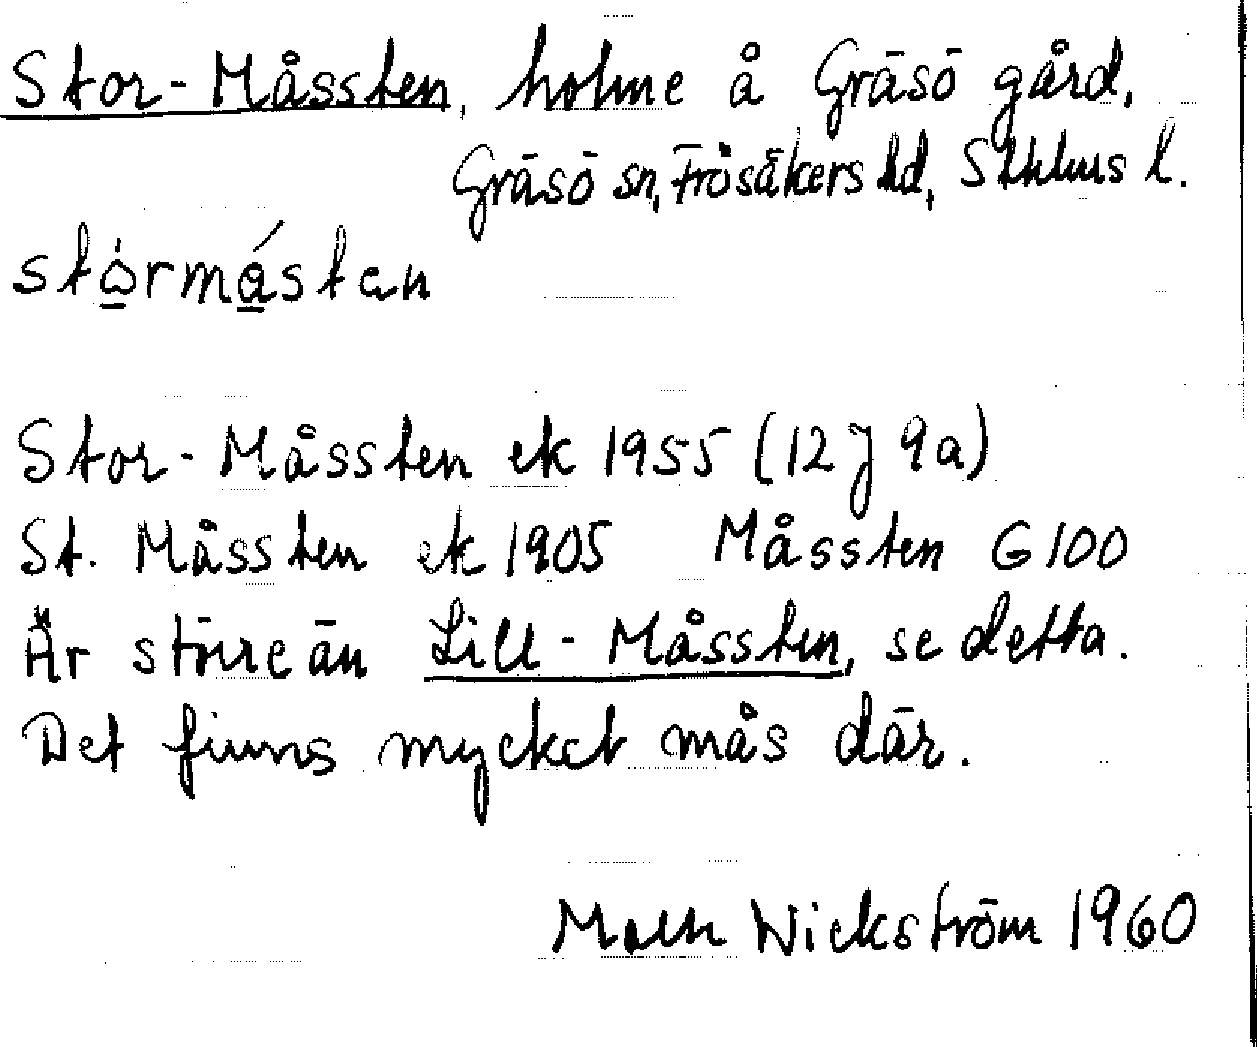 Stor-Måssten, holme å Gräsö gård,
Gräsö sn, Frösåkers hd, Sthlms l.
stòrmástan
Stor-Måssten ek 1955 (12 J 9a)
St. Måssten ek 1905 Måssten G 100
Är större än Lill-Måssten, se detta.
Det finns mycket mås där.
Wickström 1960